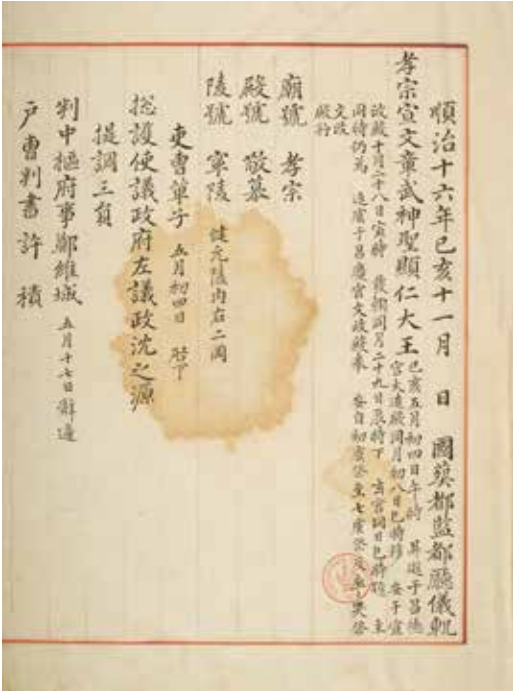 順治十六年己亥十一月 日 國葬都監都廳儀軌
孝宗宣文章武神聖顯仁大王己亥五月初四日午時 昇遐于昌德
宮大造殿同月初八日巳時移 安于宣
政殿十月二十八日寅時 發靷同月二十九日辰時下 玄宮同日巳時 主
同時仍爲 返虞于昌慶宮文政殿奉 安自初虞祭至七虞祭及卒哭祭
文政
殿行
廟號 孝宗
殿號 敬慕
陵號 寧陵 健元陵內右二岡
吏曹單子 五月初四日 啓下
摠護使議政府左議政沈之源
提調三員
判中樞府事鄭維城 五月十七日辭遞
戶曹判書許積